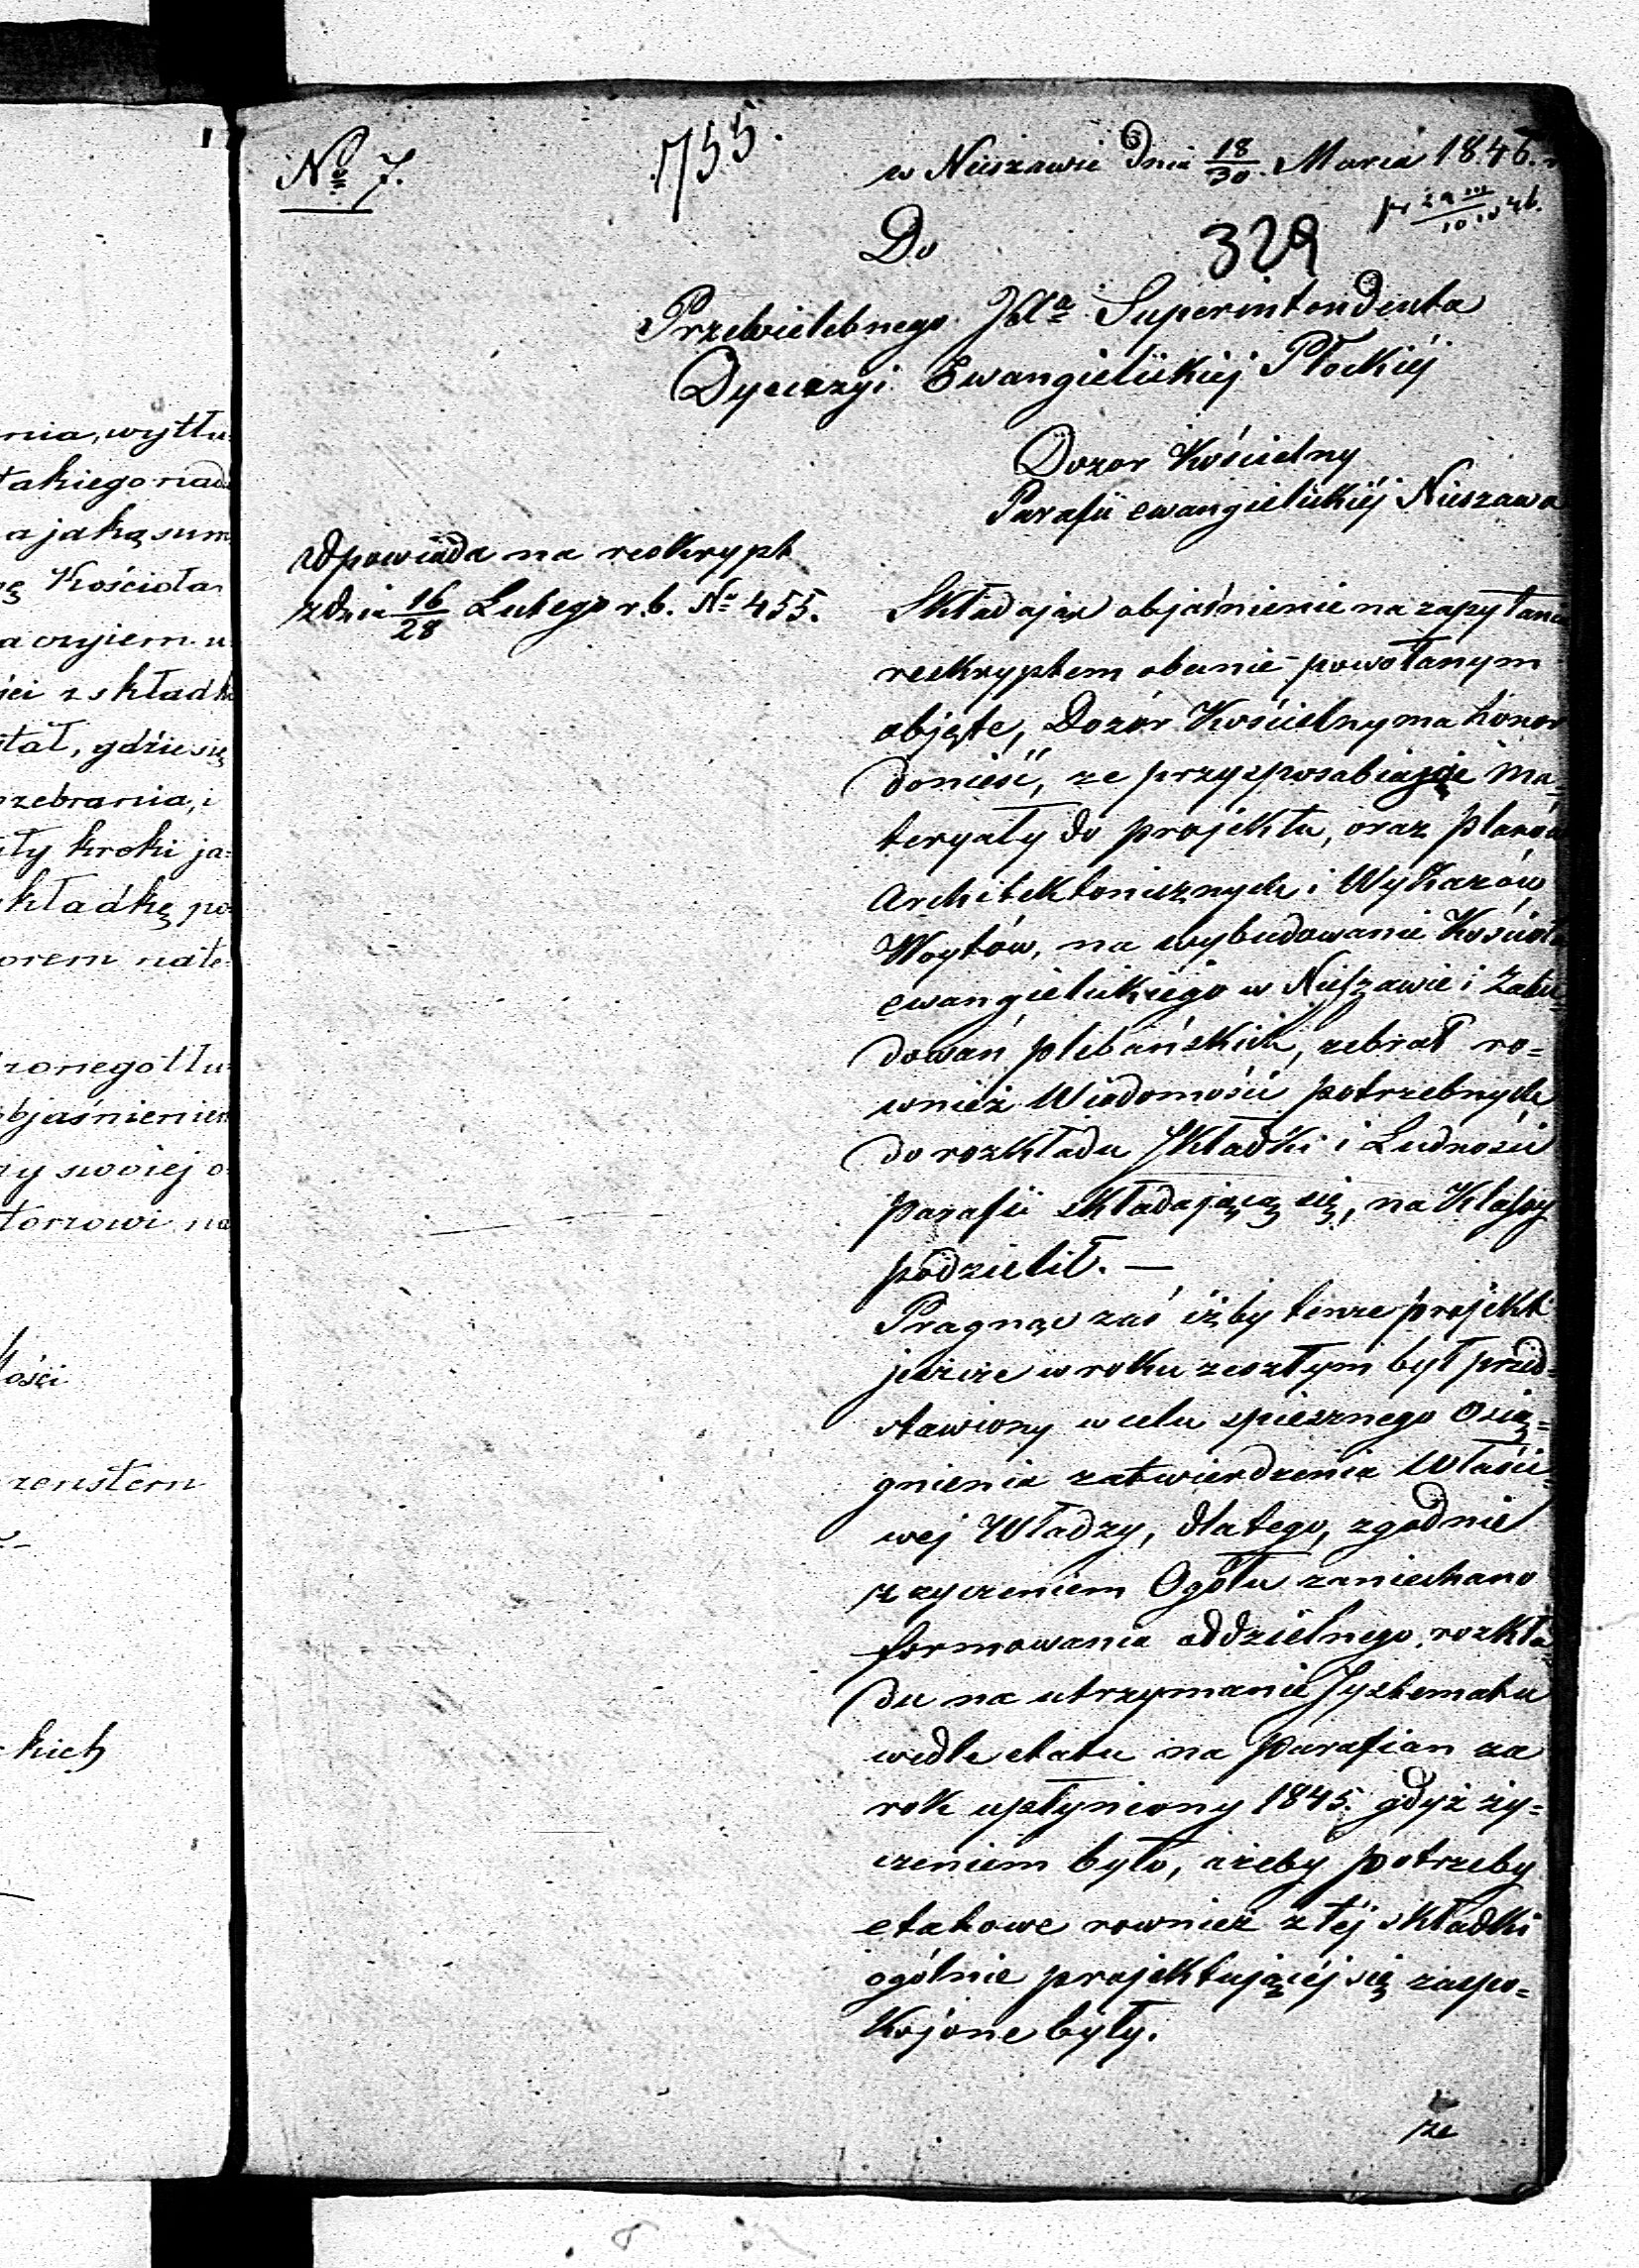 nia, wytłu=
takiego nad
a jaką sum
ę Kościoła
a czyiem u
ści z składk
stał, gdzie się
zebrania, i
ły kroki ja=
kładkę po=
orem nale=
zonego tłu=
objaśnienien
zy swoiej o
torzowi na
ości
zenstern
kich
No 7.
755.
w Nieszawie Dnia 18/30 Marca 1846.
329
Do
Przewielebnego Superintendenta
Dyecezyi Ewangielickiej Płockiéj
Dozor Kościelny
Parafii ewangielickiéj Nieszawa
Odpowiada na reskrypt
z dnia 16/28 Lutego r.b. No 455.
Składając objaśnienie na zapytania
reskryptem obecnie powołanym
objęte, Dozór Kościelny ma honor
donieść, ze przysposabiając ma=
teryały do projektu, oraz planów
Architektonicznych i Wykazów
Woytów, na wybudowanie Kościoła
ewangielickiego w Nieszawie i Zabu=
dowań plebańskich, zebrał ro=
wnież Wiadomości potrzebnych
do rozkładu Składki i Ludnosci
parafii składającą się, na Klassy
podzielił. —
Pragnąc zaś iżby tenze projekt
jeszcze w roku zeszłym był przed=
stawiony w celu spiesznego Osią=
gnienia zatwierdzenia Właści=
wej Władzy, dlatego, zgodnie
z zyczeniem Ogółu zaniechano
formowania oddzielnego rozkła=
du na utrzymanie Systematu
wedle etatu na parafian za
rok upłyniony 1845. gdyż ży=
czeniem było, ażeby potrzeby
etatowe rownież z téj składki
ogólnie projektującéj się zaspo=
kojone były.
ze